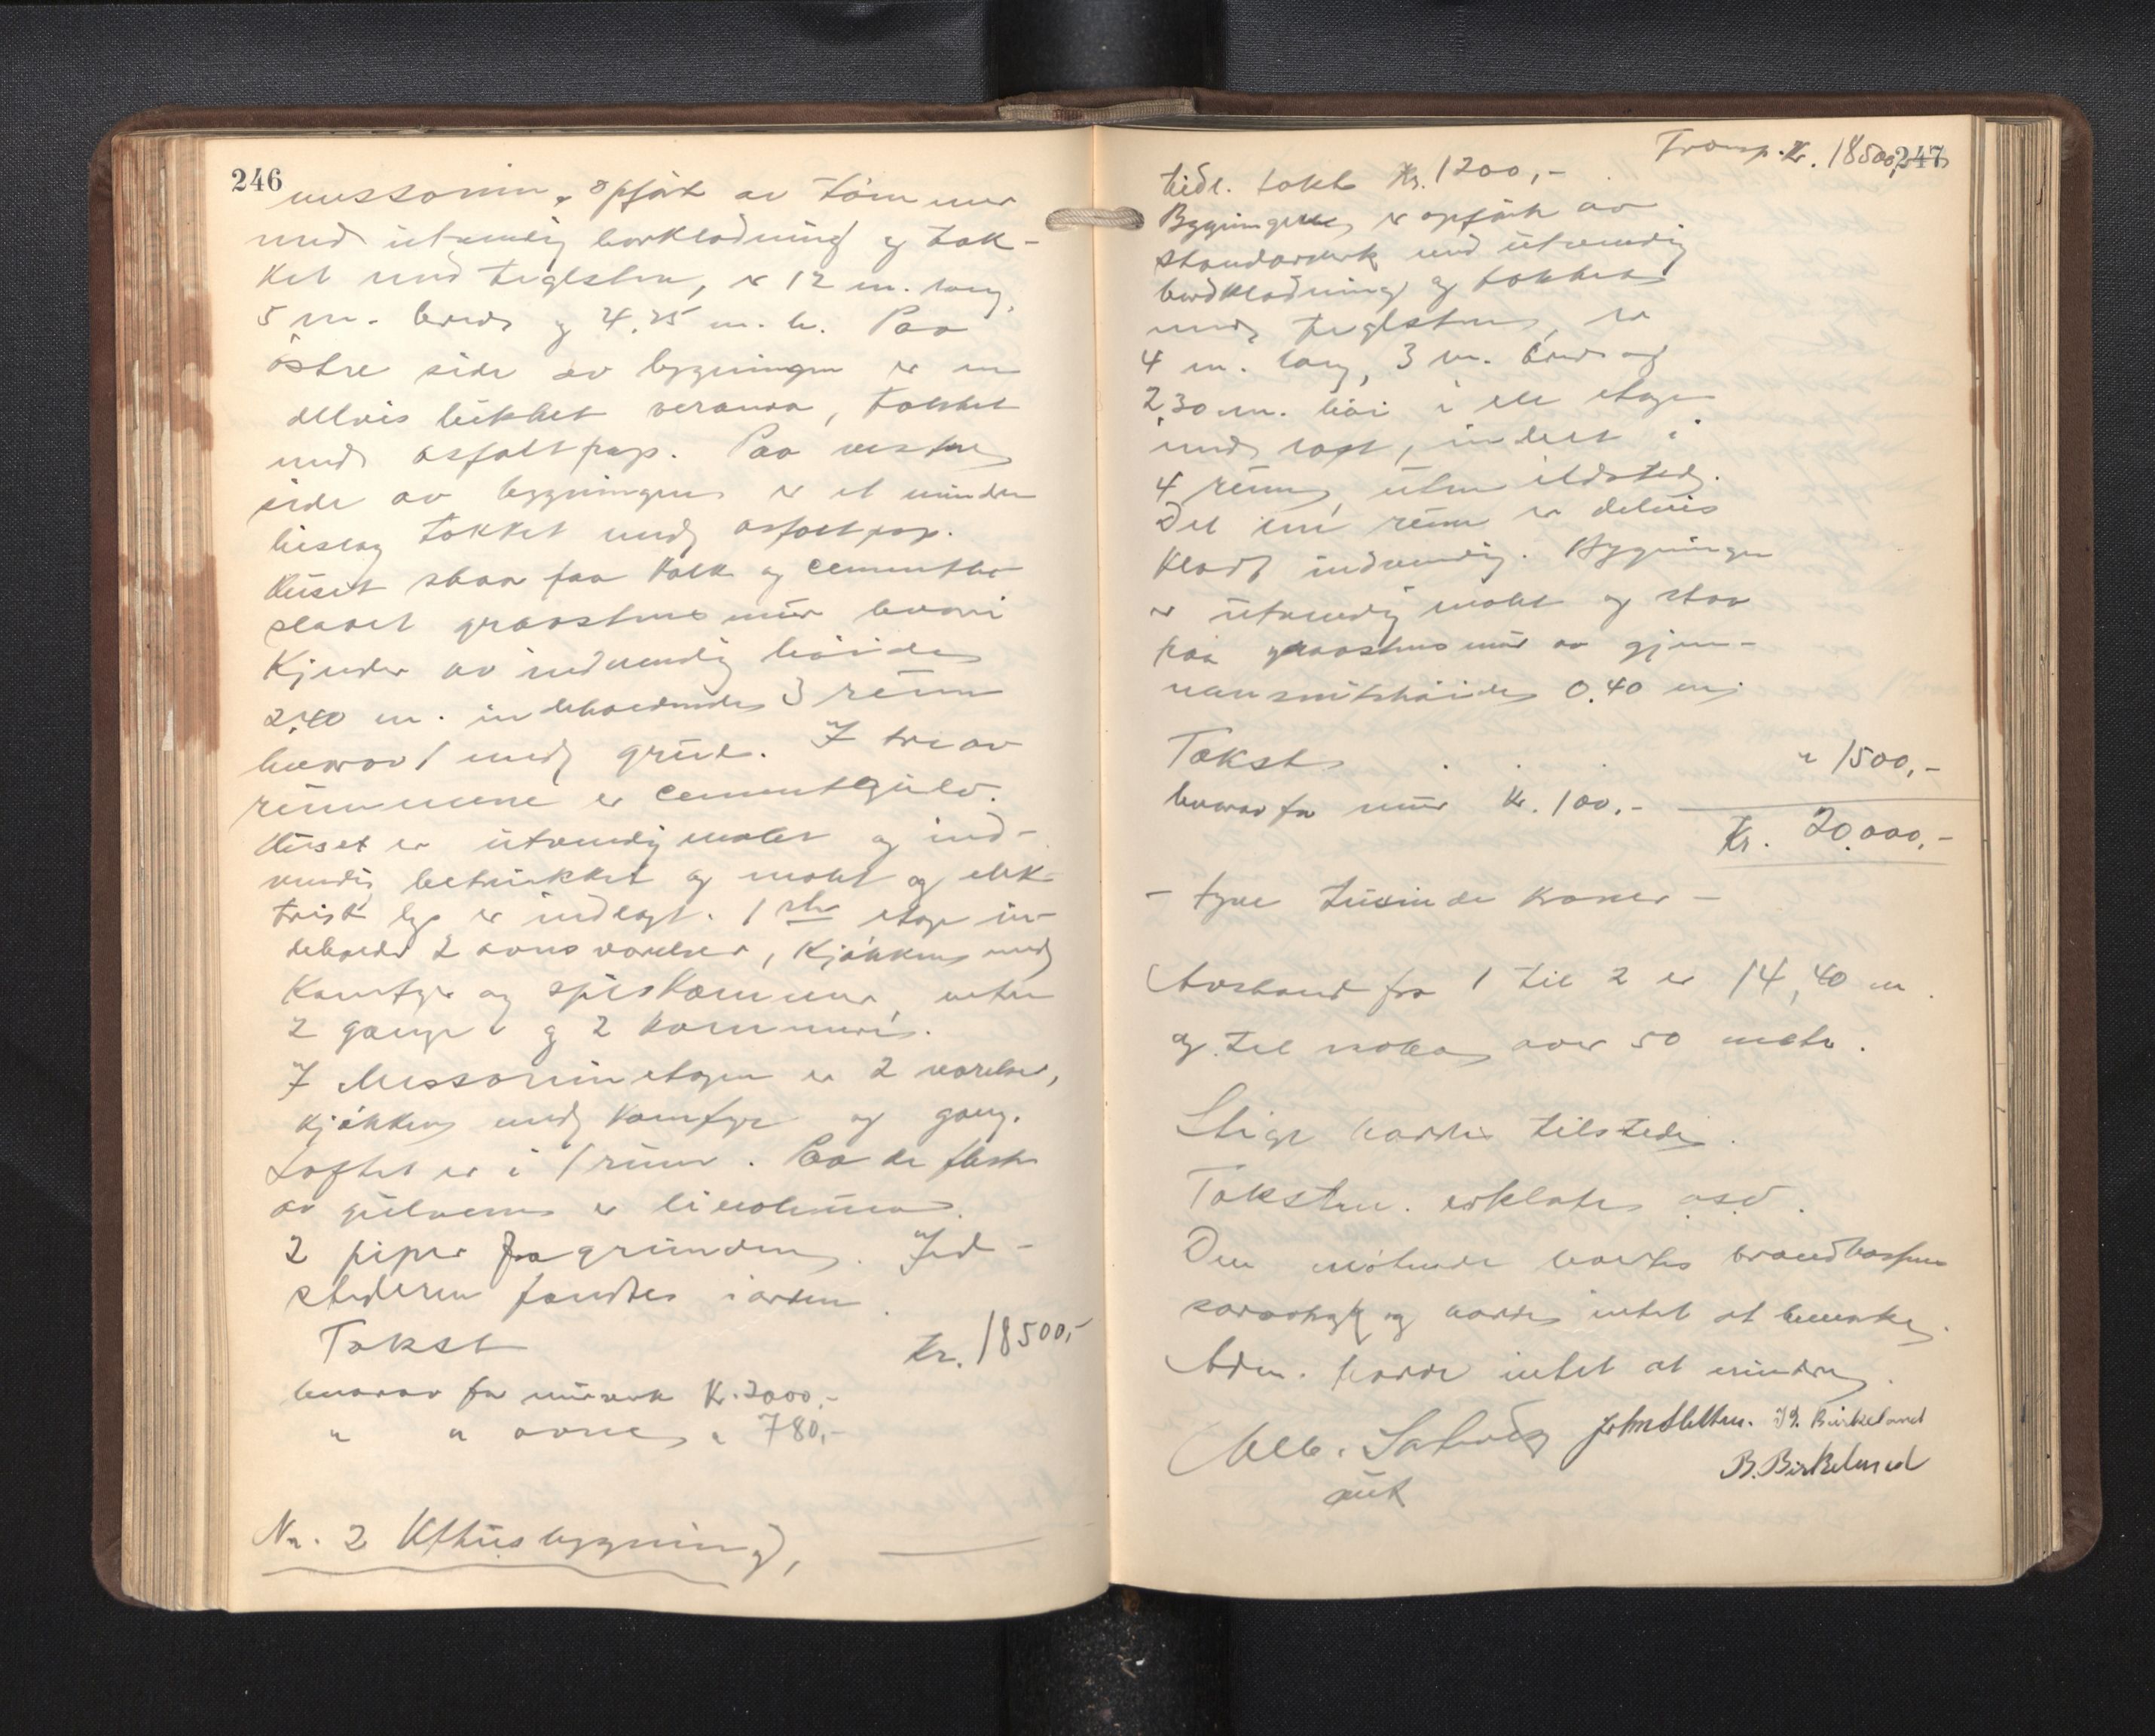 246
messanin, opført av tømmer
med utvendig bordklædning og tæk-
ket med teglsten, er 12 m. lang,
5 m. bred og 4,25 m. h. Paa
østre side av bygningen er en
delvis lukket veranda, tækket
med asfaltpap. Paa vestre
side av bygningen er et mindre
bislag tækket med asfaltpap.
Huset staar paa kalk og cement
slaaet graastensmur hvori
kjelder av indvendig høide
2,40 m. indeholdende 3 rum
hvorav 1 med grue. I tre av
rummene er cementgulv.
Huset er utvendig malet og ind-
vendig betrukket og malet og elek-
trisk lys er indlagt. 1ste etage in-
deholder 2 ovnsværelser, kjøkken med
komfyr og spiskammer, uten
2 gange og 2 kammers.
I Messaninetagen er 2 værelser,
kjøkken med komfyr og gang.
Loftet er i 1 rum. Paa de fleste
av gulvene er linoleum.
2 piper fra grunden. Ild-
stederne fandtes i orden.
Takst Kr. 18500,-
hvorav for murverk Kr. 2000,-
" " ovner " 780,-
Nr. 2 Uthusbygning,
247
Transp. Kr. 18500,-
tidl. takst Kr. 1200,-
Bygningen er opført av
standerverk med utvendig
bordklædning og tækket
med teglsten, er
4 m. lang, 3 m. bred og
2,30 m. høi i en etage
med loft, inddelt i
4 rum, uten ildsted.
Det ene rum er delvis
klædt indvendig. Bygningen
er utvendig malet og staar
paa graastensmur av gjen-
nemsnitshøide 0,40 m.
Takst " 1500,-
hvorav for mur Kr. 100,-
Kr. 20.000,-
- tyve tusinde kroner -
Avstand fra 1 til 2 er 14,40 m.
og til naboer over 50 meter.
Stige hadde tilstede.
Taksten erklærtes osv.
Den møtende for brandkassen
og hadde intet at bemerke.
Adm. hadde intet at erindre.
Birkeland
B. Birkeland